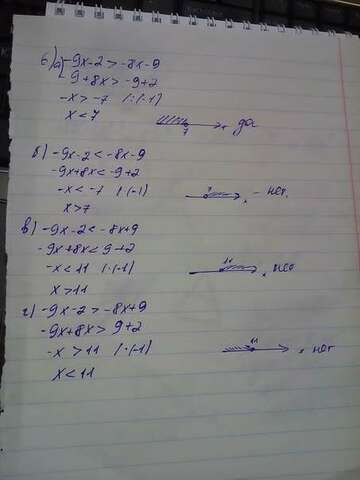 6) а) -9x-2 > -8x-9
9+8x > -9+2
-x > -7 (·(-1)
x < 7
7 да
б) -9x-2 < -8x-9
-9x+8x < -9+2
-x < -7 (·(-1)
x > 7
7 - нет.
в) -9x-2 < -8x+9
-9x+8x < 9+2
-x < 11 (·(-1)
x > 11
11 нет
г) -9x-2 > -8x+9
-9x+8x > 9+2
-x > 11 (·(-1)
x < 11
11 нет